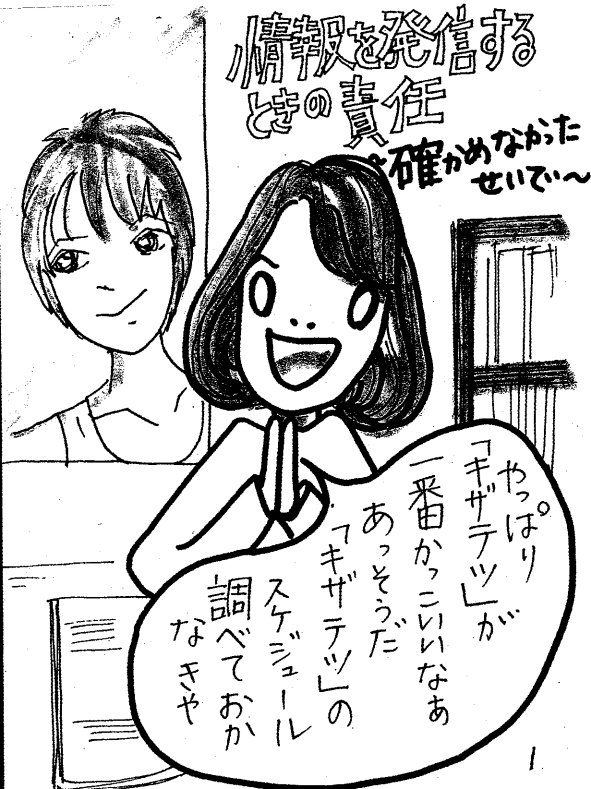 情報を発信する
ときの責任
~確かめなかった
せいでい~
やっぱり
「キザテツ」が
一番かっこいいなぁ
あっそうだ
「キザテツ」の
スケジュール
調べておか
なきゃ
1